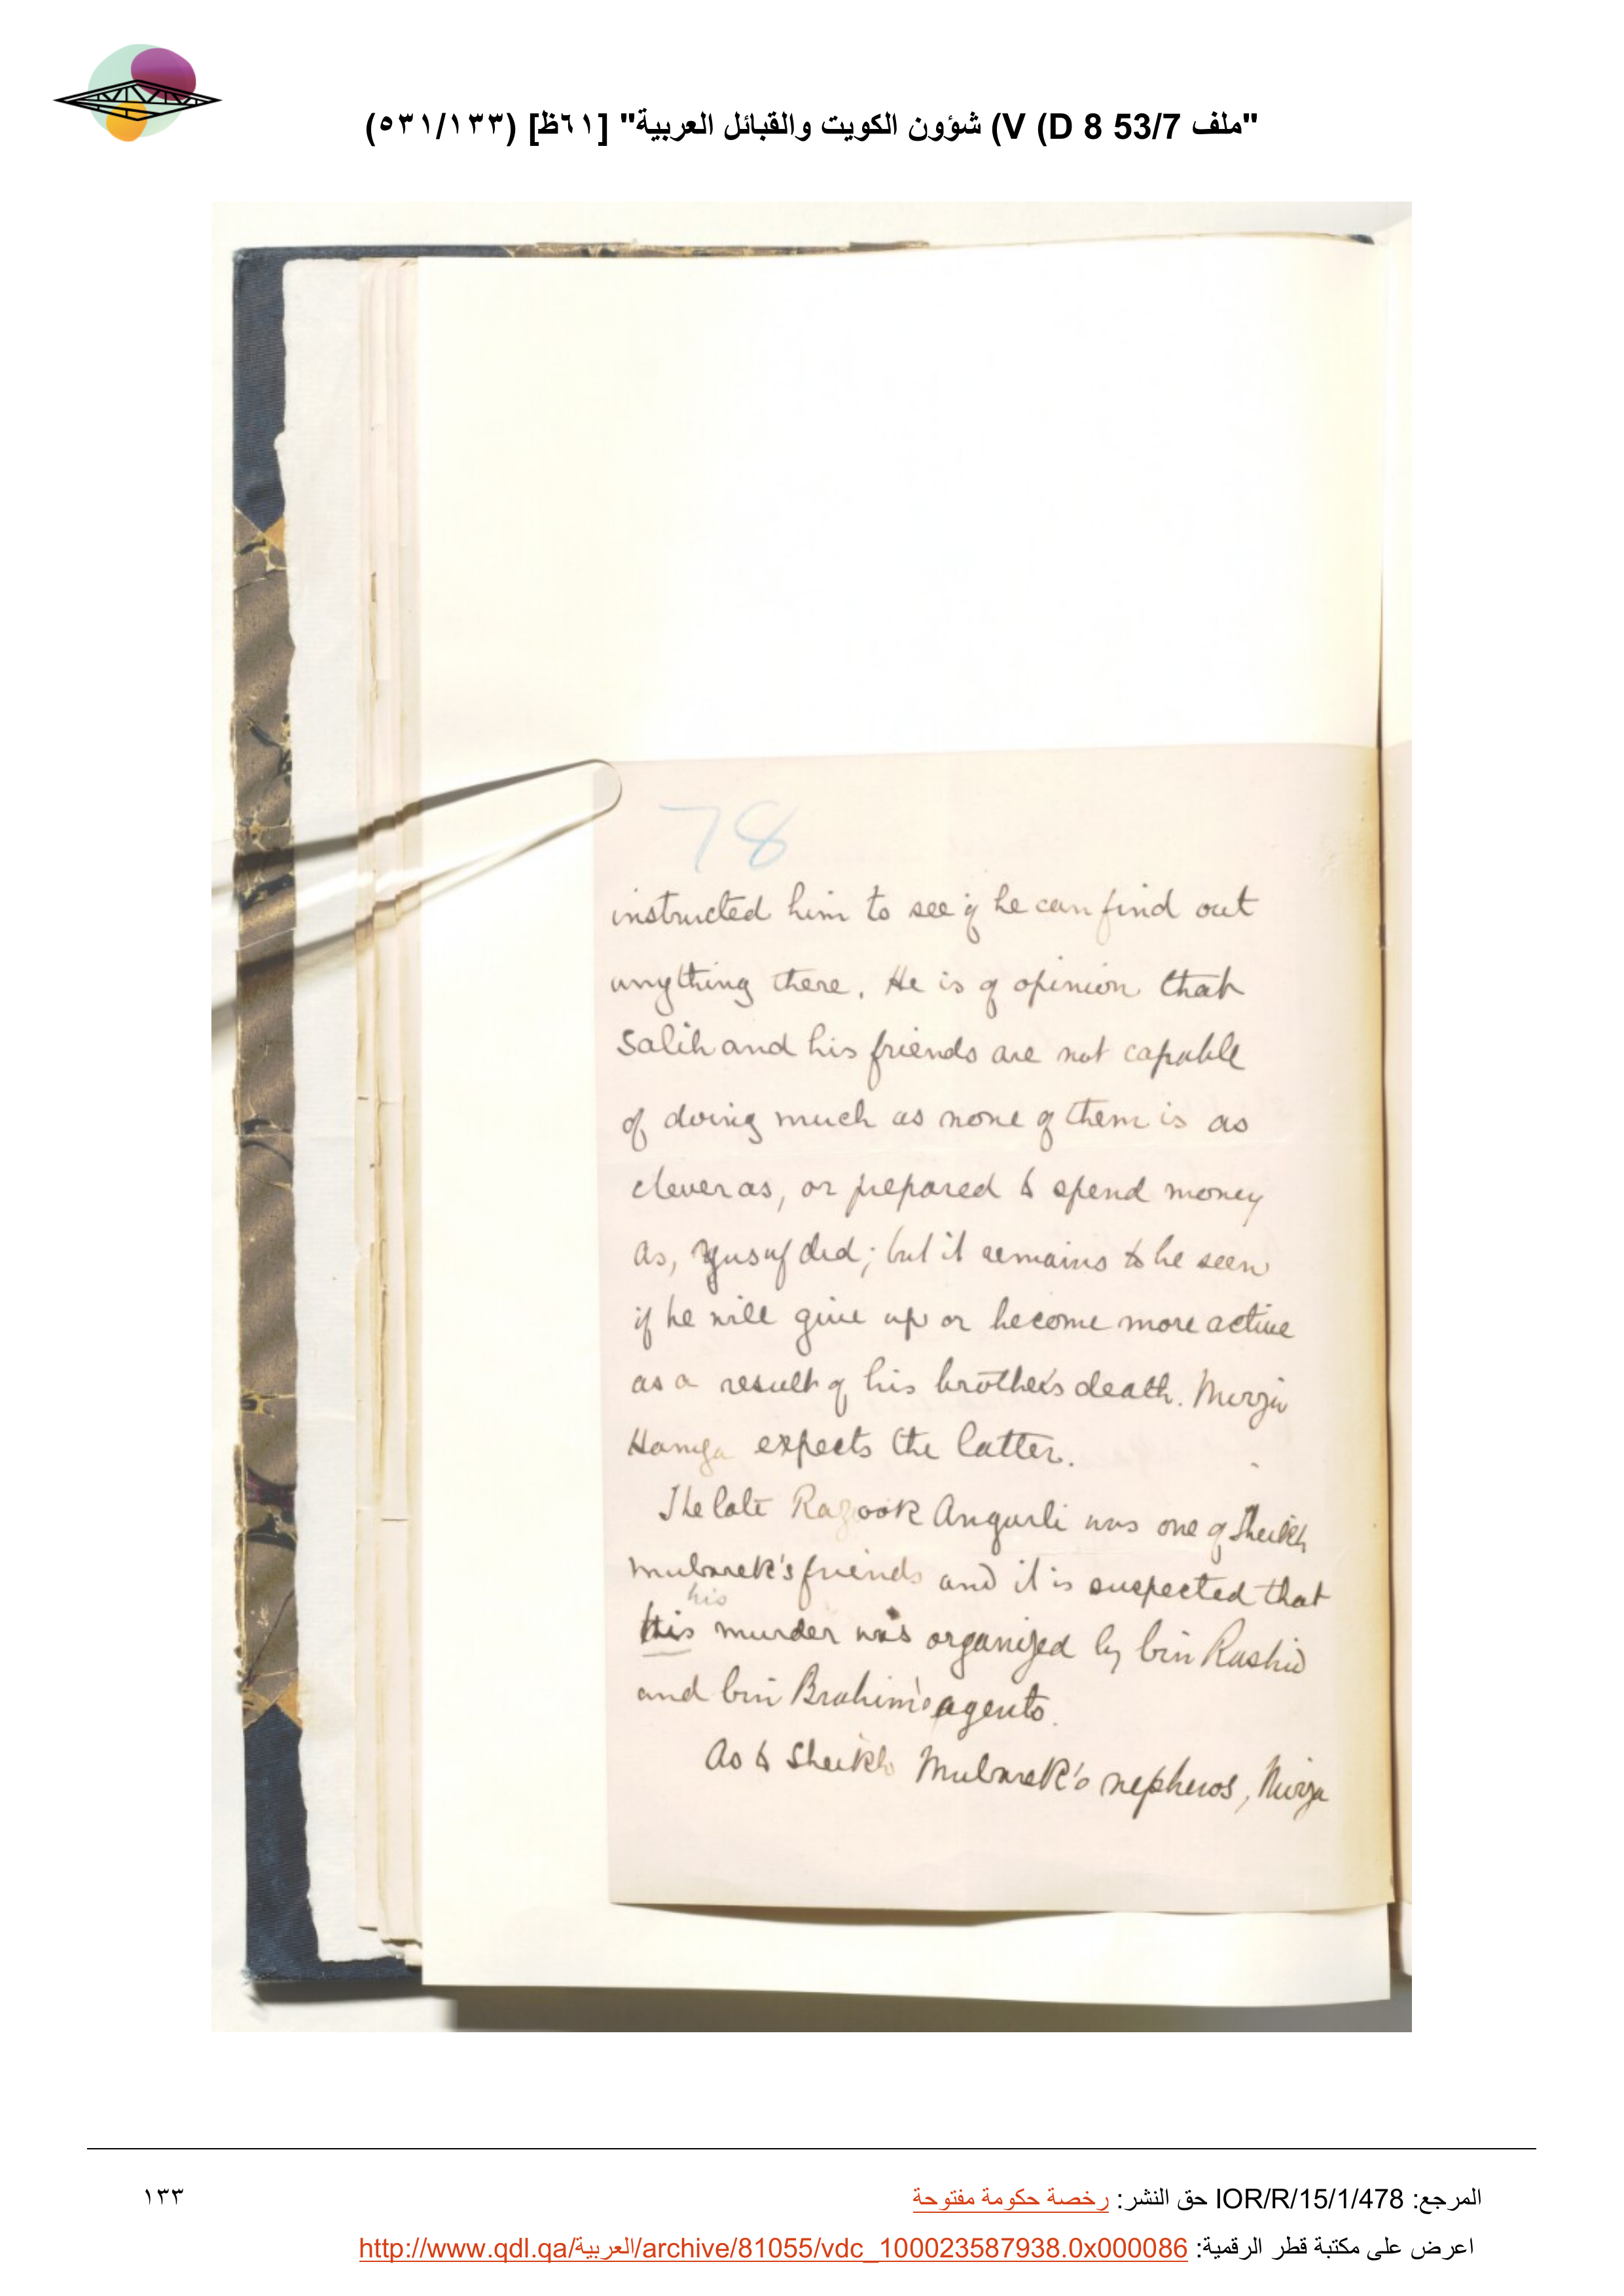 "ملف 53/7 V (D 8) شؤون الكويت والقبائل العربية" [٦١ظ] (٥٣١/١٣٣)
78
instructed him to see if he can find out
anything there. He is of opinion that
Salih and his friends are not capable
of doing much as none of them is as
clever as, or prepared to spend money
as, Yusuf did; but it remains to be seen
if he will give up or become more active
as a result of his brother's death. Mirza
Hamza expects the latter.
The late Razook Angurli was one of Sheikh
Mubarek's friends and it is suspected that
his
this murder was organized by bin Rashid
and bin Brahim's agents.
As to Sheikh Mubarek's nephews, Mirza
المرجع: IOR/R/15/1/478 حق النشر: رخصة حكومة مفتوحة
١٣٣
اعرض على مكتبة قطر الرقمية: http://www.qdl.qa/العربية/archive/81055/vdc_100023587938.0x000086